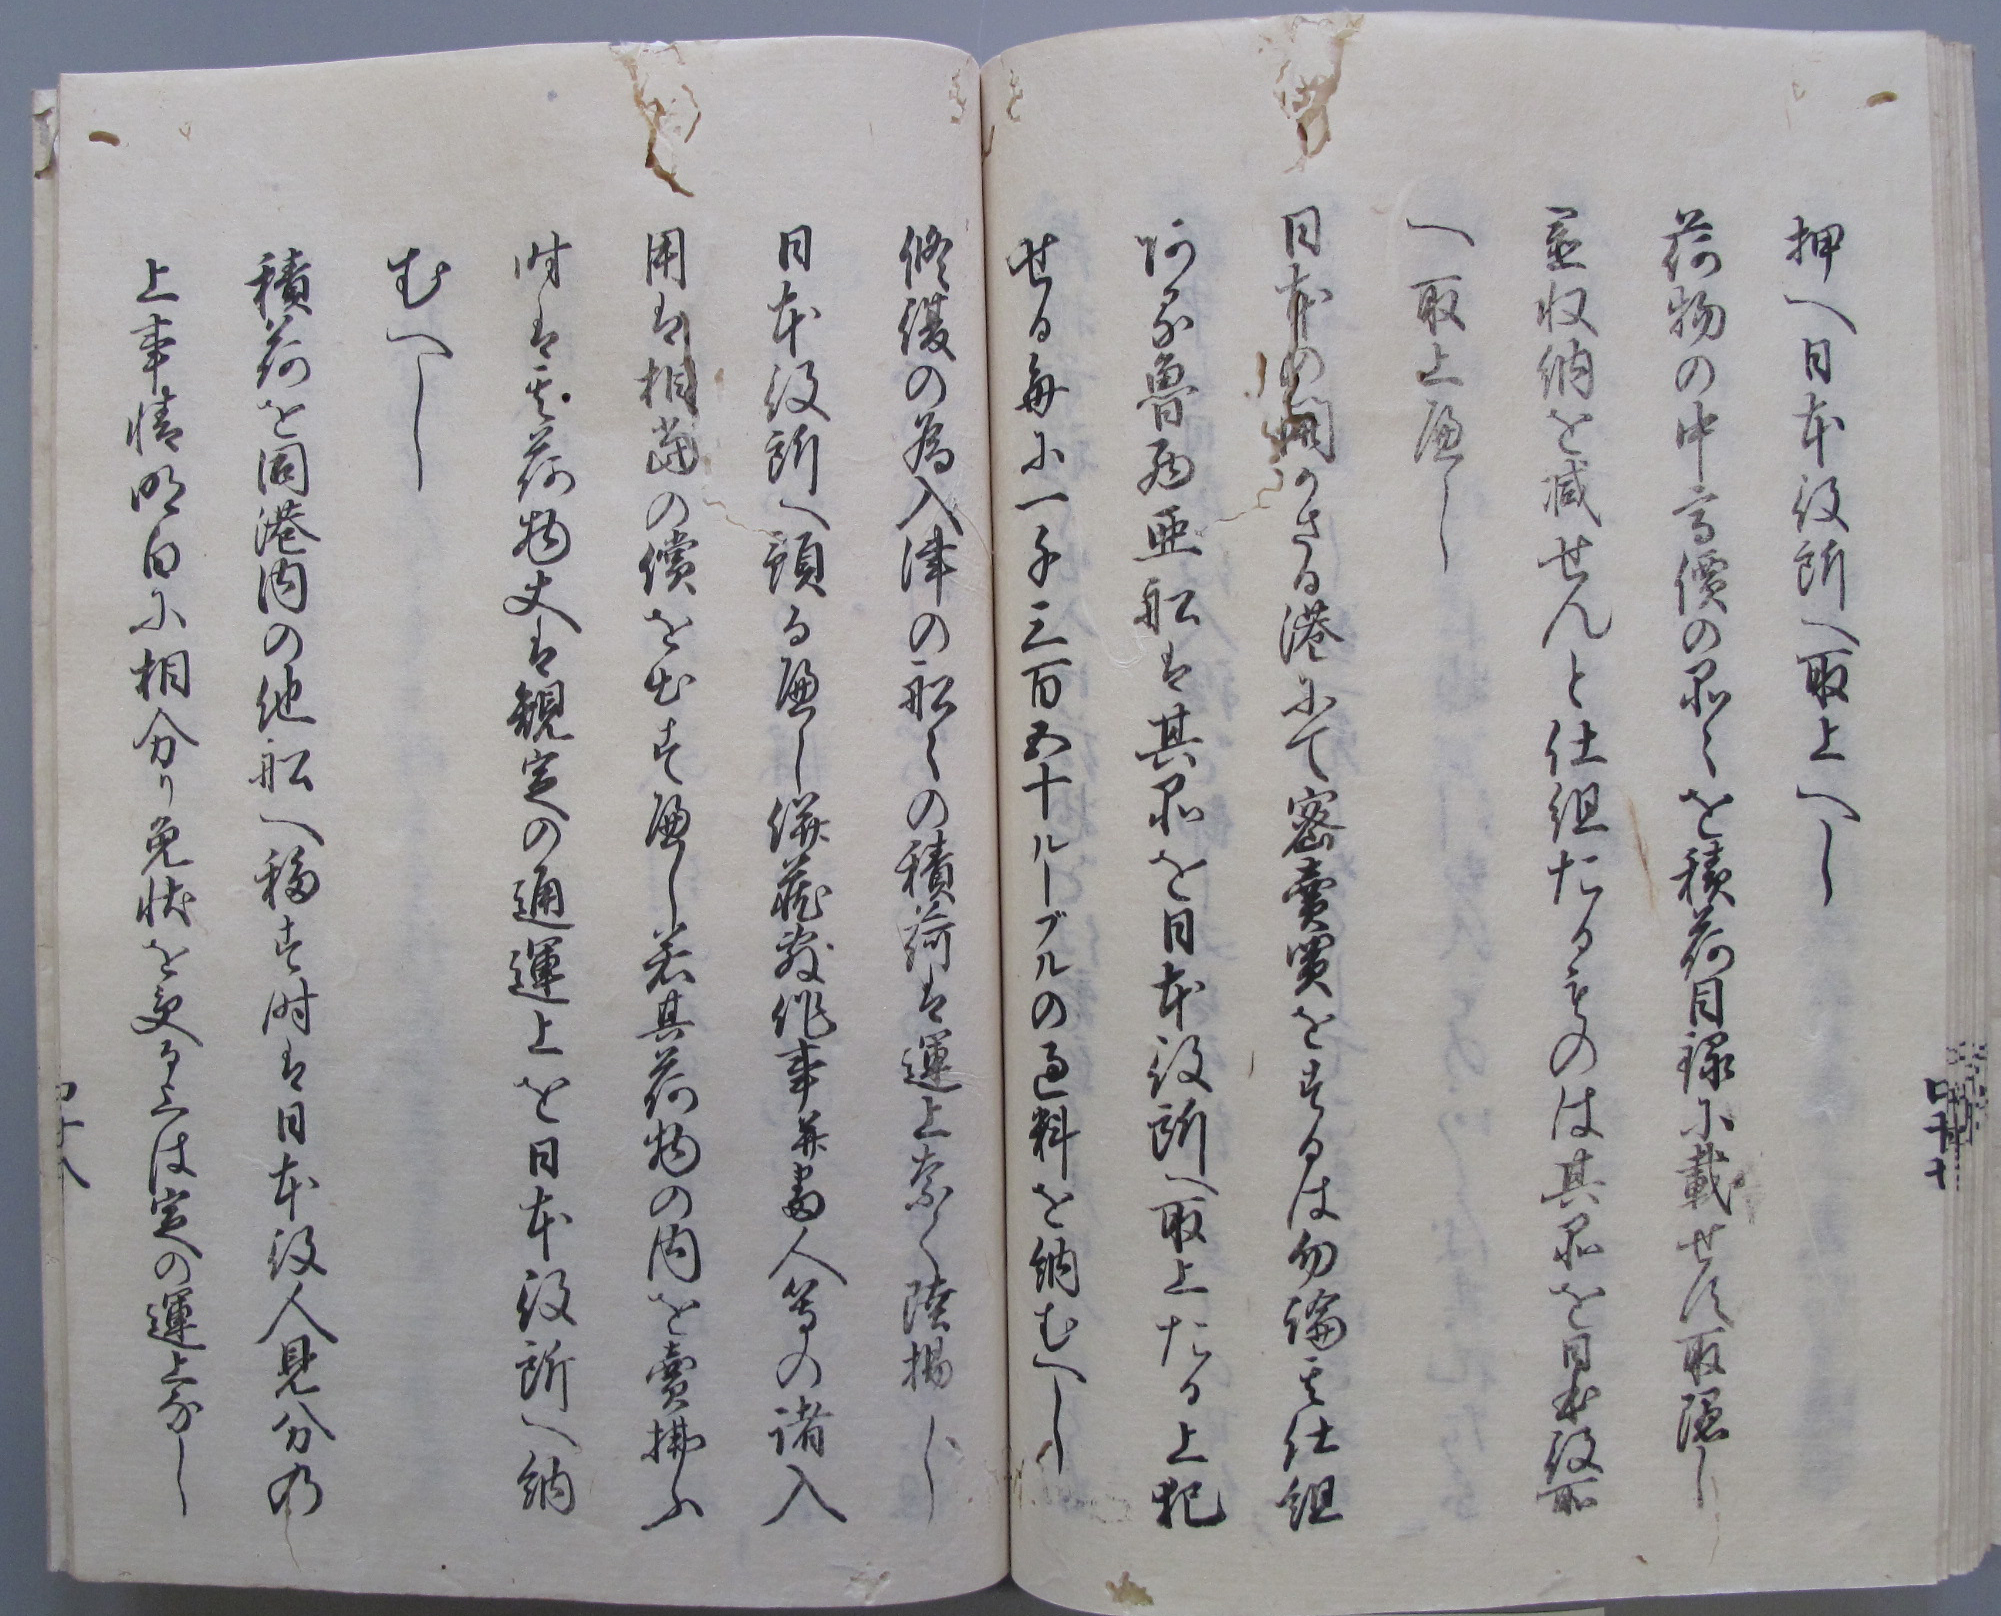 押へ日本役所へ取上へし
荷物の中高價の品々を積荷目録に載せす取隠し
運上収納を減せんと仕組たるものは其品を日本役所
へ取上へし
日本の開かさる港にて密賣買をするは勿論其仕組
ある魯西亜船は其品を日本役所へ取上たる上犯
せる毎に一千三百五十ルーブルの過料を納むへし
修復の為入津の船々の積荷は運上なく陸揚し
日本役所へ預るへし併蔵敷作事并番人等の諸入
用は相當の償を出すへし若其荷物の内を賣拂ふ
時は其荷物丈は規定の通運上を日本役所へ納
むへし
積荷を同港内の他船へ移す時は日本役人見分の
上事情明白に相分り免状を受る上は定の運上なし